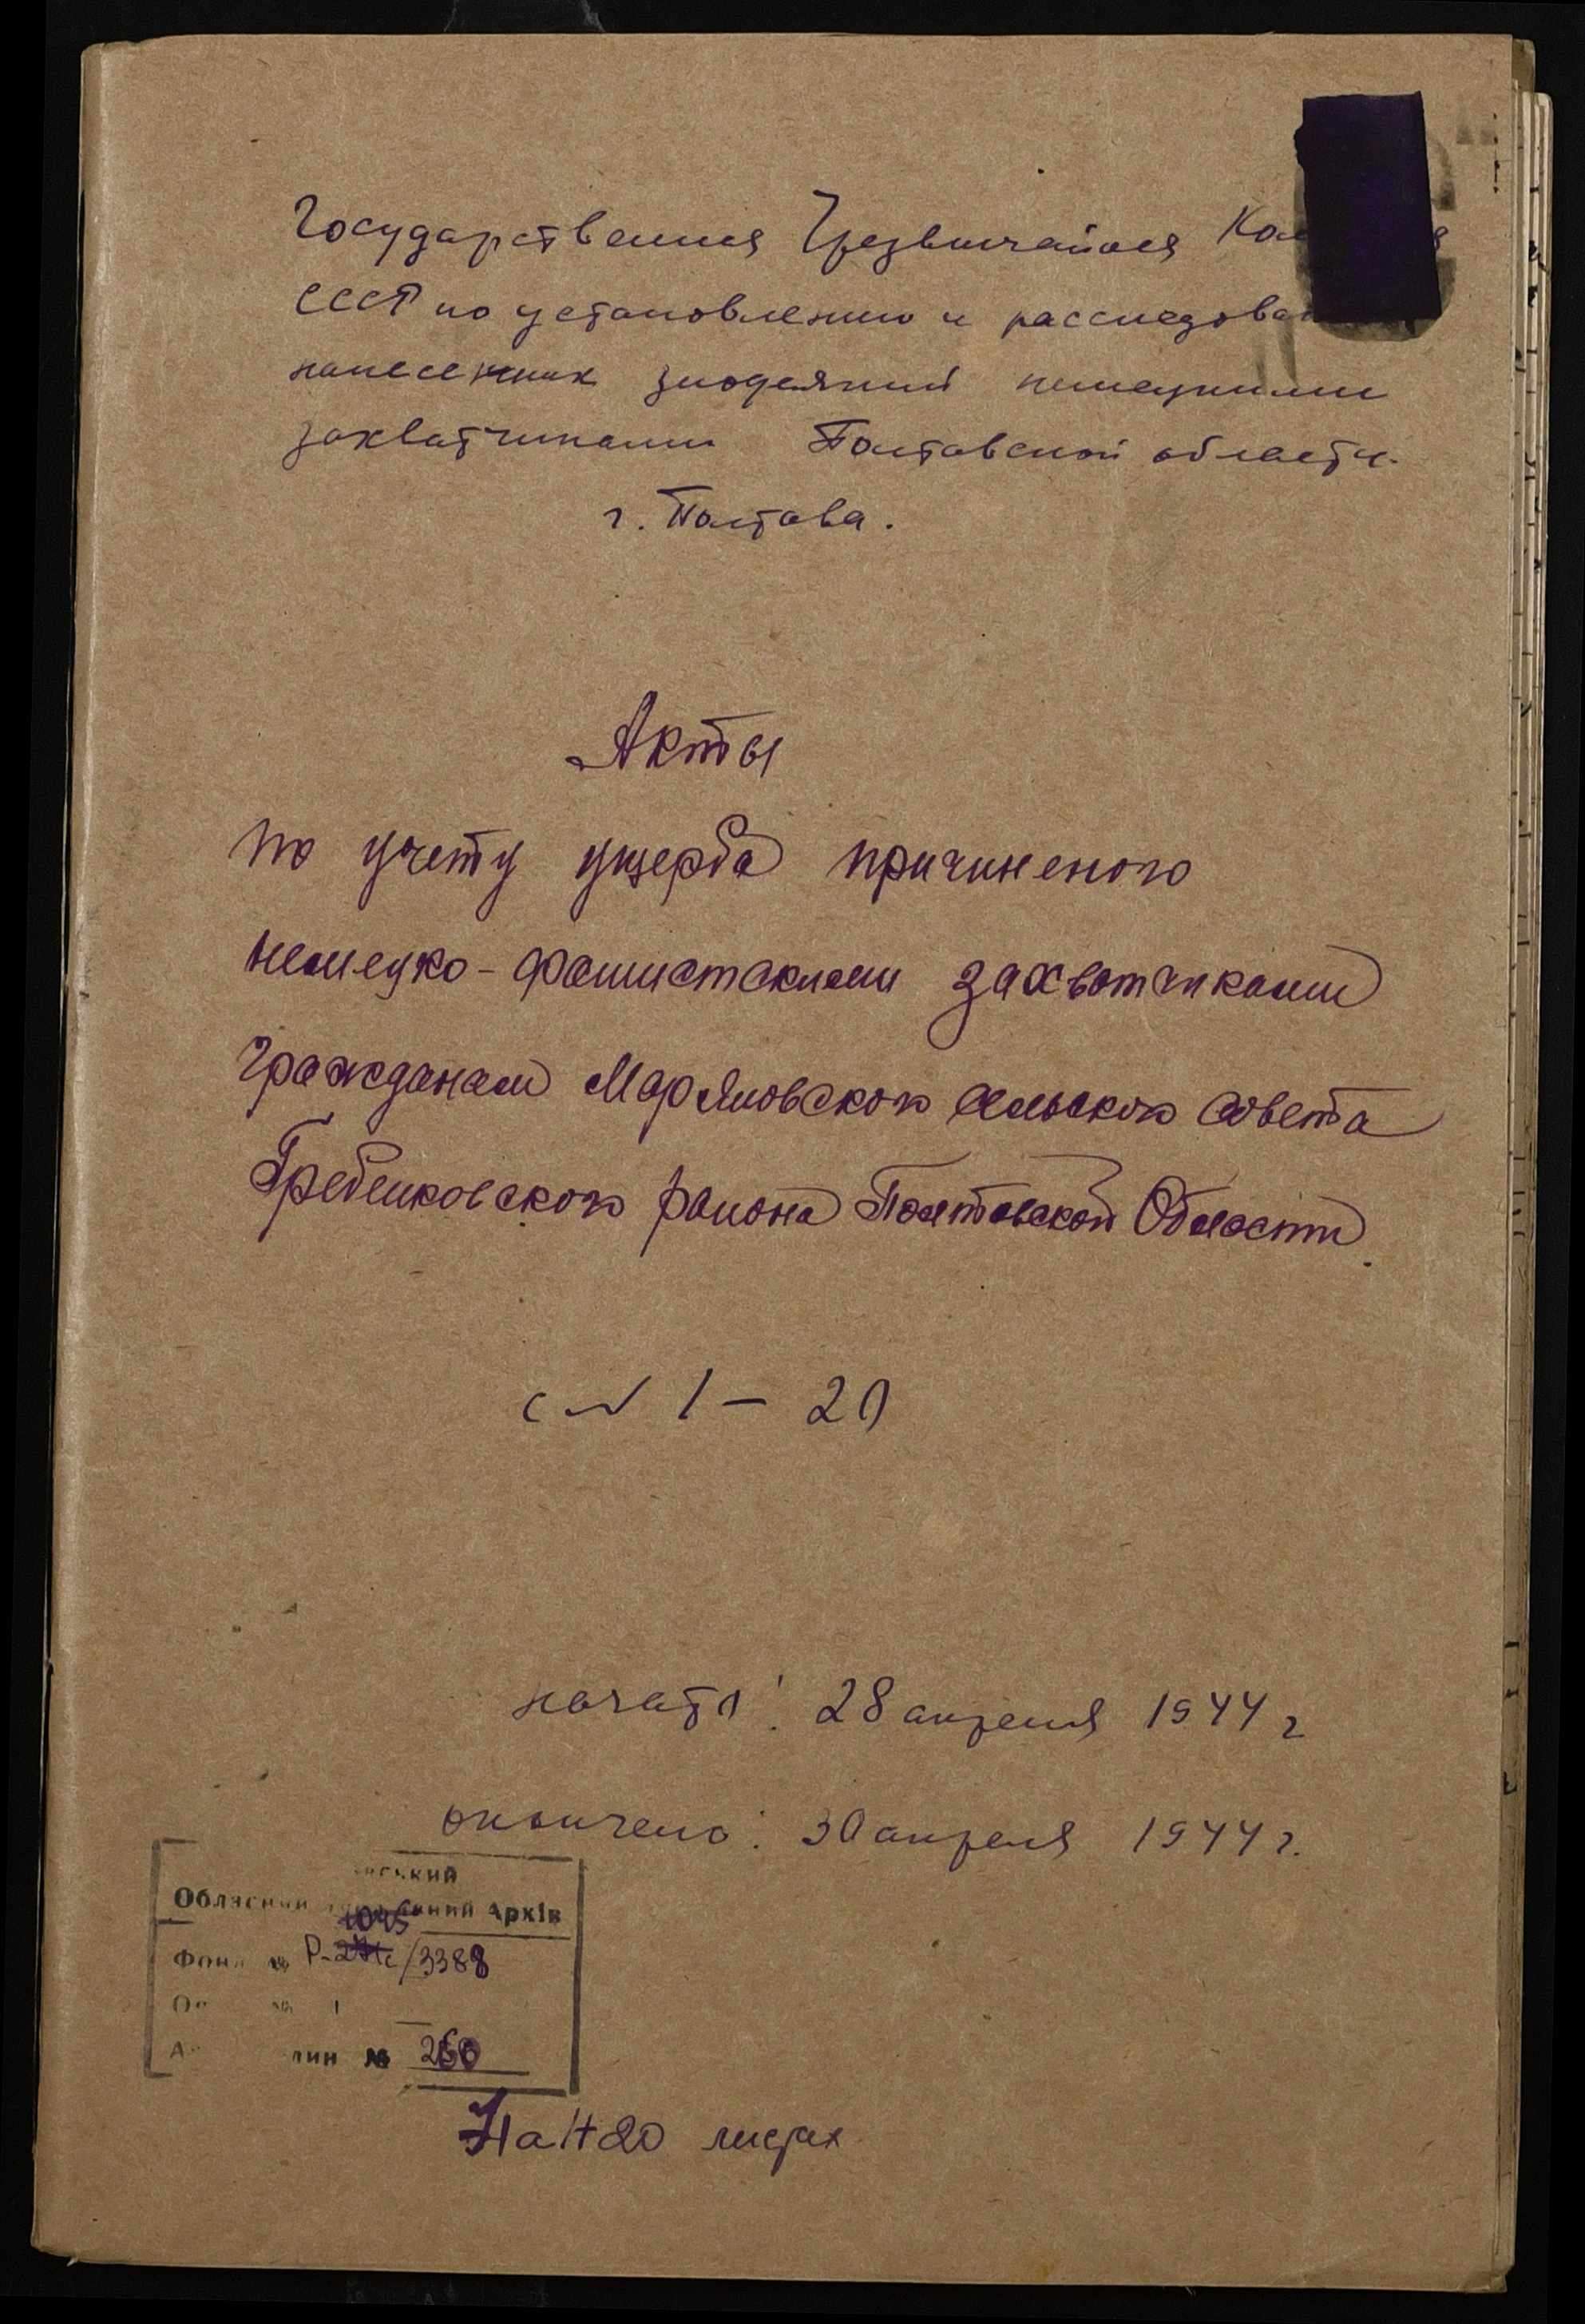 Государственная Чрезвычайная
СССР по установлению и
нанесенных злодеяний немецкими
захватчиками Полтавской области.
г. Полтава.
Акты
по учету ущерба причиненого
немецко-фашистскими захватчиками
гражданам Маряновского сельского совета
Гребенковского района Полтавской Области.
с № 1 - 20
начато: 28 апреля 1944 г
окончено: 30 апреля 1944 г.
Архів
Р- /3388
№ 260
На 1+20 листах